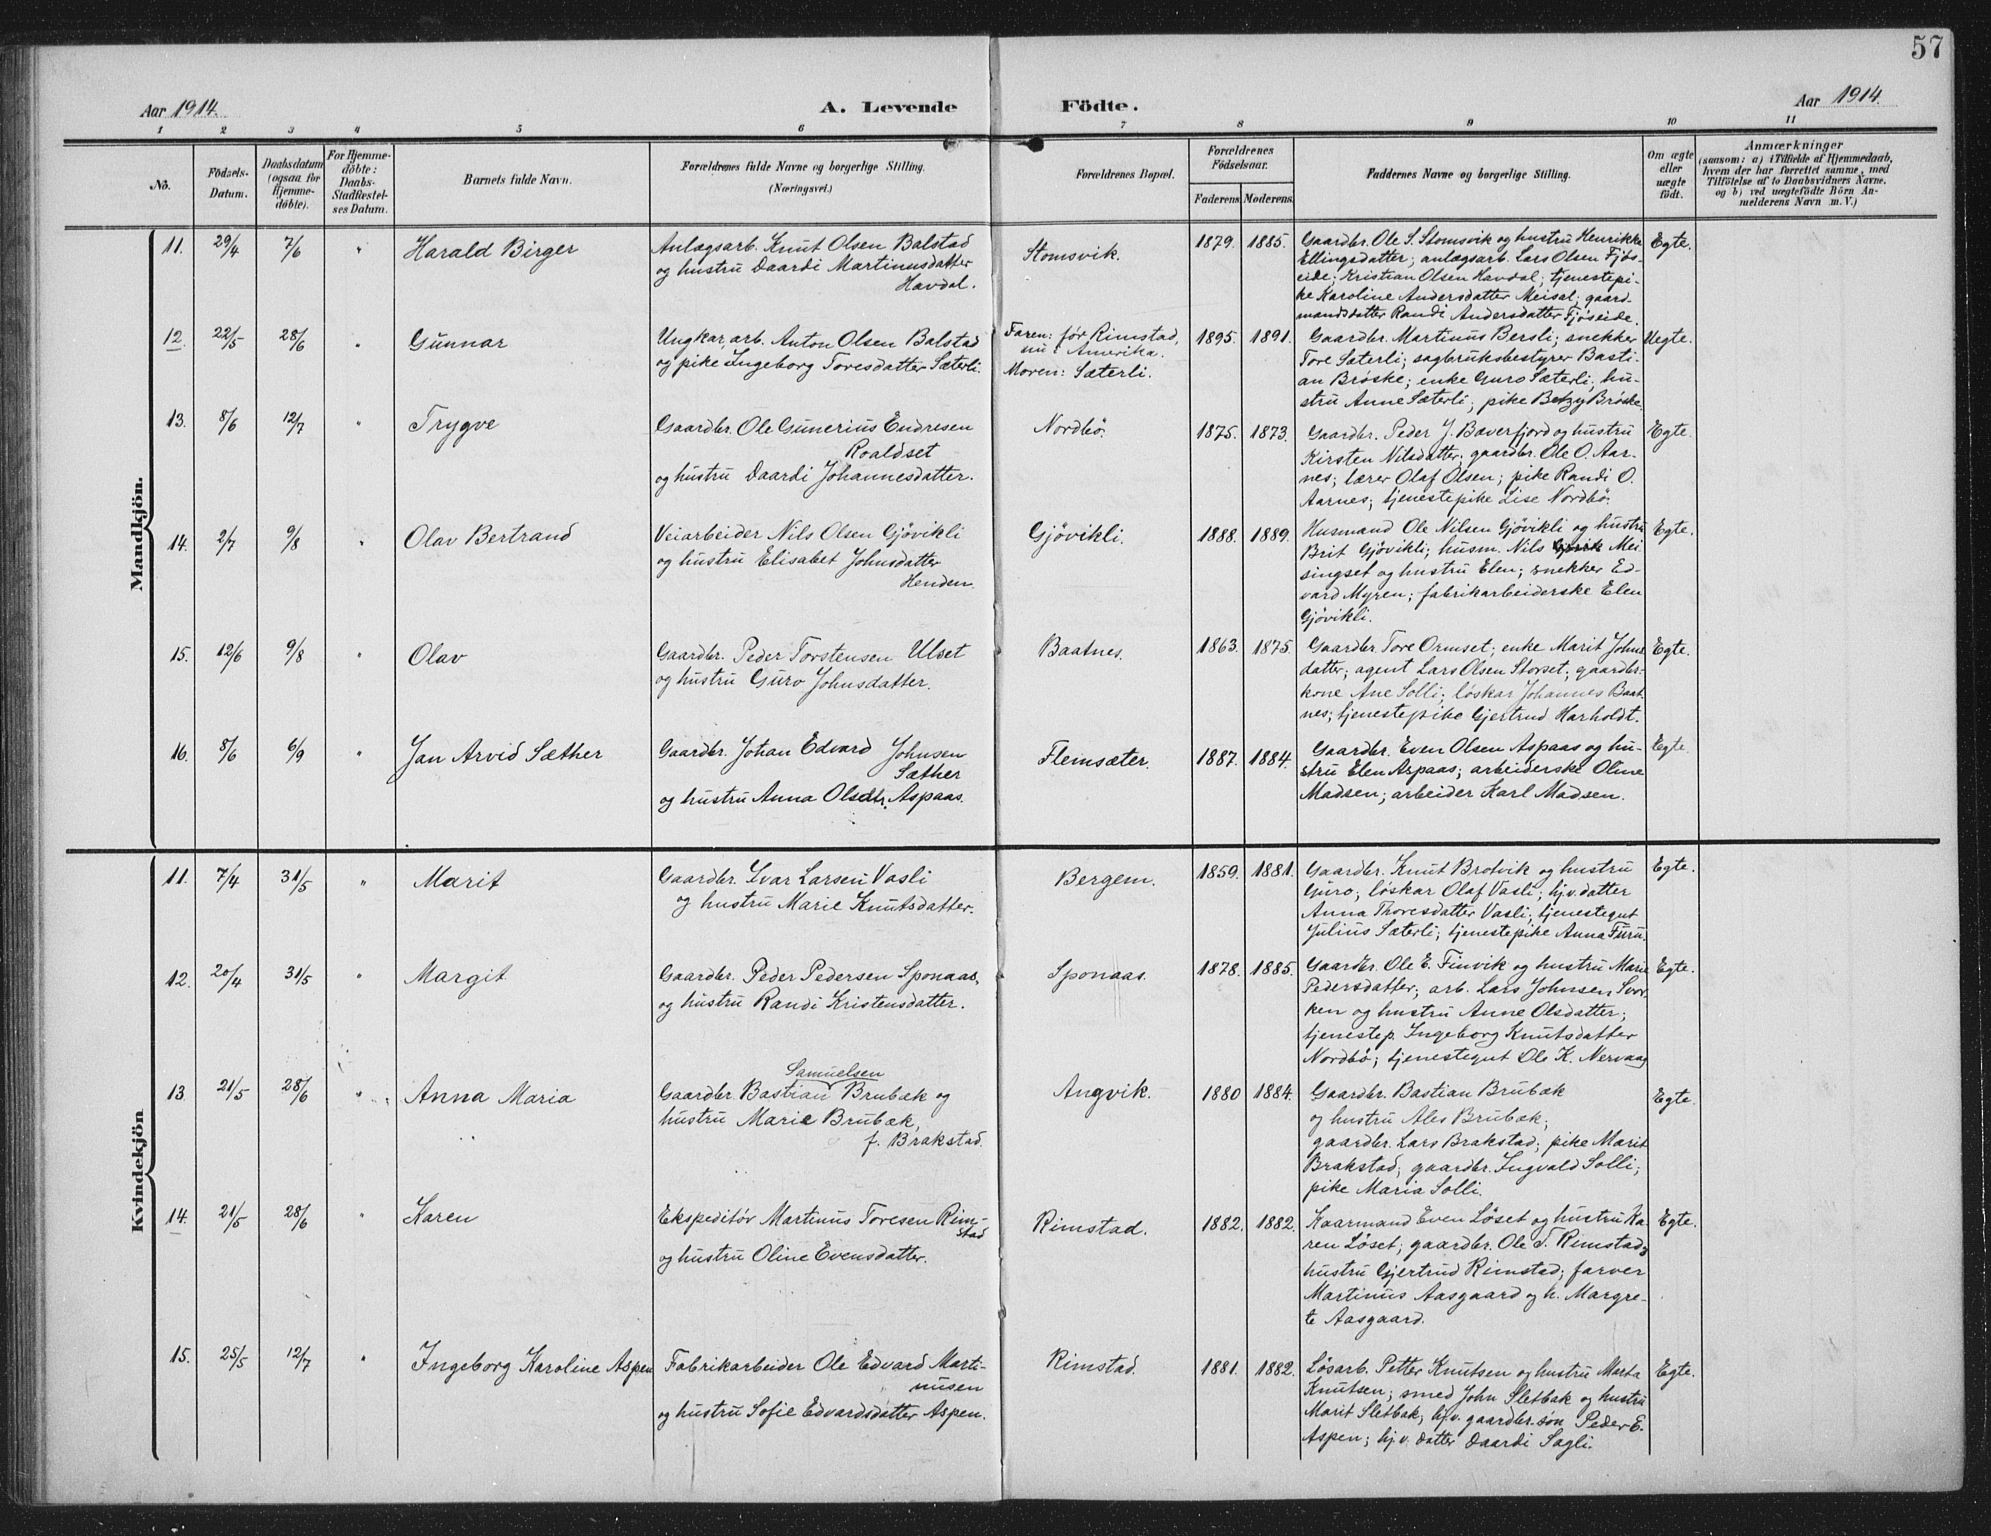 57
Aar 1914.
A. Levende Födte.
Aar 1914.
1 2 3 4 5 6 7 8 9 10 11
No.
Födsels-Datum.
Daabsdatum (ogsaa for Hjemme-döbte).
For Hjemme-döbte: Daabs-Stadfæstel-ses Datum.
Barnets fulde Navn.
Forældrenes fulde Navne og borgerlige Stilling.
(Næringsvei.)
Forældrenes Bopæl.
Forældrenes Födselsaar.
Faderens Moderens.
Faddernes Navne og borgerlige Stilling.
Om ægte eller uægte födt.
Anmærkninger
(saasom: a) i Tilfælde af Hjemmedaab, hvem der har forrettet samme, med Tilföielse af to Daabsvidners Navne, og b) ved uægtefödte Börn An-melderens Navn m. V.)
Mandkjön.
11. 29/4 7/6 " Harald Birger
Anlægsarb. Knut Olsen Balstad
og hustru Daardi Martinusdatter
Havdal.
Stomsvik.
1879. 1885.
Gaardbr. Ole S. Stomsvik og hustru Henrikke
Ellingsdatter; anlægsarb. Lars Olsen Fjös-
eide; Kristian Olsen Havdal; tjenestepi-
ke Karoline Andersdatter Meisal; gaard-
mandsdatter Randi Andersdatter Fjöseide.
Egte.
12. 22/5 28/6 " Gunnar
Ungkar, arb. Anton Olsen Balstad
og pike Ingeborg Toresdatter Sæterli.
Faren: før Rimstad,
nu i Amerika.
Moren: Sæterli.
1895. 1891.
Gaardbr. Martinus Bersli; snekker
Tore Sæterli; sagbruksbestyrer Basti-
an Bröske; enke Guro Sæterli; hu-
stru Anne Sæterli; pike Betzy Bröske.
Uegte.
13. 8/6 12/7 " Trygve
Gaardbr. Ole Gunerius Endresen
Roaldset
og hustru Daardi Johannesdatter.
Nordbö.
1875. 1873.
Gaardbr. Peder J. Bæverfjord og hustru
Kirsten Nilsdatter; gaardbr. Ole O. Aar-
nes; lærer Olaf Olsen; pike Randi O.
Aarnes; tjenestepike Lise Nordbö.
Egte.
14. 2/7 9/8 " Olav Bertrand
Veiarbeider Nils Olsen Gjövikli
og hustru Elisabet Johnsdatter
Henden.
Gjövikli.
1888. 1889.
Husmand Ole Nilsen Gjövikli og hustru
Brit Gjövikli; husm. Nils Mei-
singset og hustru Elen; snekker Ed-
vard Myren; fabrikarbeiderske Elen
Gjövikli.
Egte.
15. 12/6 9/8 " Olav
Gaardbr. Peder Torstensen Ulset
og hustru Guro Johnsdatter.
Baatnes.
1863. 1875.
Gaardbr. Tore Ormset; enke Marit Johns-
datter; agent Lars Olsen Storset; gaardbr-
kone Ane Solli; löskar Johannes Baat-
nes; tjenestepike Gjertrud Harholdt.
Egte.
16. 8/6 6/9 " Jan Arvid Sæther
Gaardbr. Johan Edvard Johnsen
Sæther
og hustru Anna Olsdtr. Aspaas.
Flemsæter.
1887. 1884.
Gaardbr. Even Olsen Aspaas og hu-
stru Elen Aspaas; arbeiderske Oline
Madsen; arbeider Karl Madsen.
Egte.
Kvindekjön
11. 7/4 31/5 " Marit
Gaardbr. Ivar Larsen Vasli
og hustru Marie Knutsdatter.
Bergem.
1859. 1881.
Gaardbr. Knut Brotvik og hustru
Guro; löskar Olaf Vasli; hjv. datter
Anna Thoresdatter Vasli; tjenestegut
Julius Sæterli; tjenestepike Anna Furu.
Egte.
12. 20/4 31/5 " Margit
Gaardbr. Peder Pedersen Sponaas,
og hustru Randi Kristensdatter.
Sponaas.
1878. 1885.
Gaardbr. Ole E. Finvik og hustru Marie
Pedersdatter; arb. Lars Johnsen Svor-
ken og hustru Anne Olsdatter;
tjenestep. Ingeborg Knutsdatter
Nordbö; tjenestegut Ole K. Nervaag
Egte.
13. 21/5 28/6 " Anna Maria
Samuelsen
Gaardbr. Bastian Brubæk og
hustru Marie Brubæk,
f. Brakstad.
Angvik.
1880 1884.
Gaardbr. Bastian Brubæk
og hustru Ales Brubæk;
gaardbr. Lars Brakstad; pike Marit
Brakstad; gaardbr. Ingvald Solli;
pike Maria Solli.
Egte.
14. 21/5 28/6 " Karen
Ekspeditör Martinus Toresen Rim-
stad
og hustru Oline Evensdatter.
Rimstad.
1882. 1882.
Kaarmand Even Löset og hustru Ka-
ren Löset; gaardbr. Ole T. Rimstad og
hustru Gjertrud Rimstad; farver
Martinus Aasgaard og h. Margre-
te Aasgaard.
Egte.
15. 25/5 12/7 " Ingeborg Karoline Aspen
Fabrikarbeider Ole Edvard Marti-
nusen
og hustru Sofie Edvardsdatter Aspen.
Rimstad.
1881. 1882.
Lösarb. Petter Knutsen og hustru Marta
Knutsen; smed John Sletbak og hustru
Marit Sletbak; hjv. gaardbr.sön Peder E.
Aspen; hj.v. datter Daardi Sagli.
Egte.